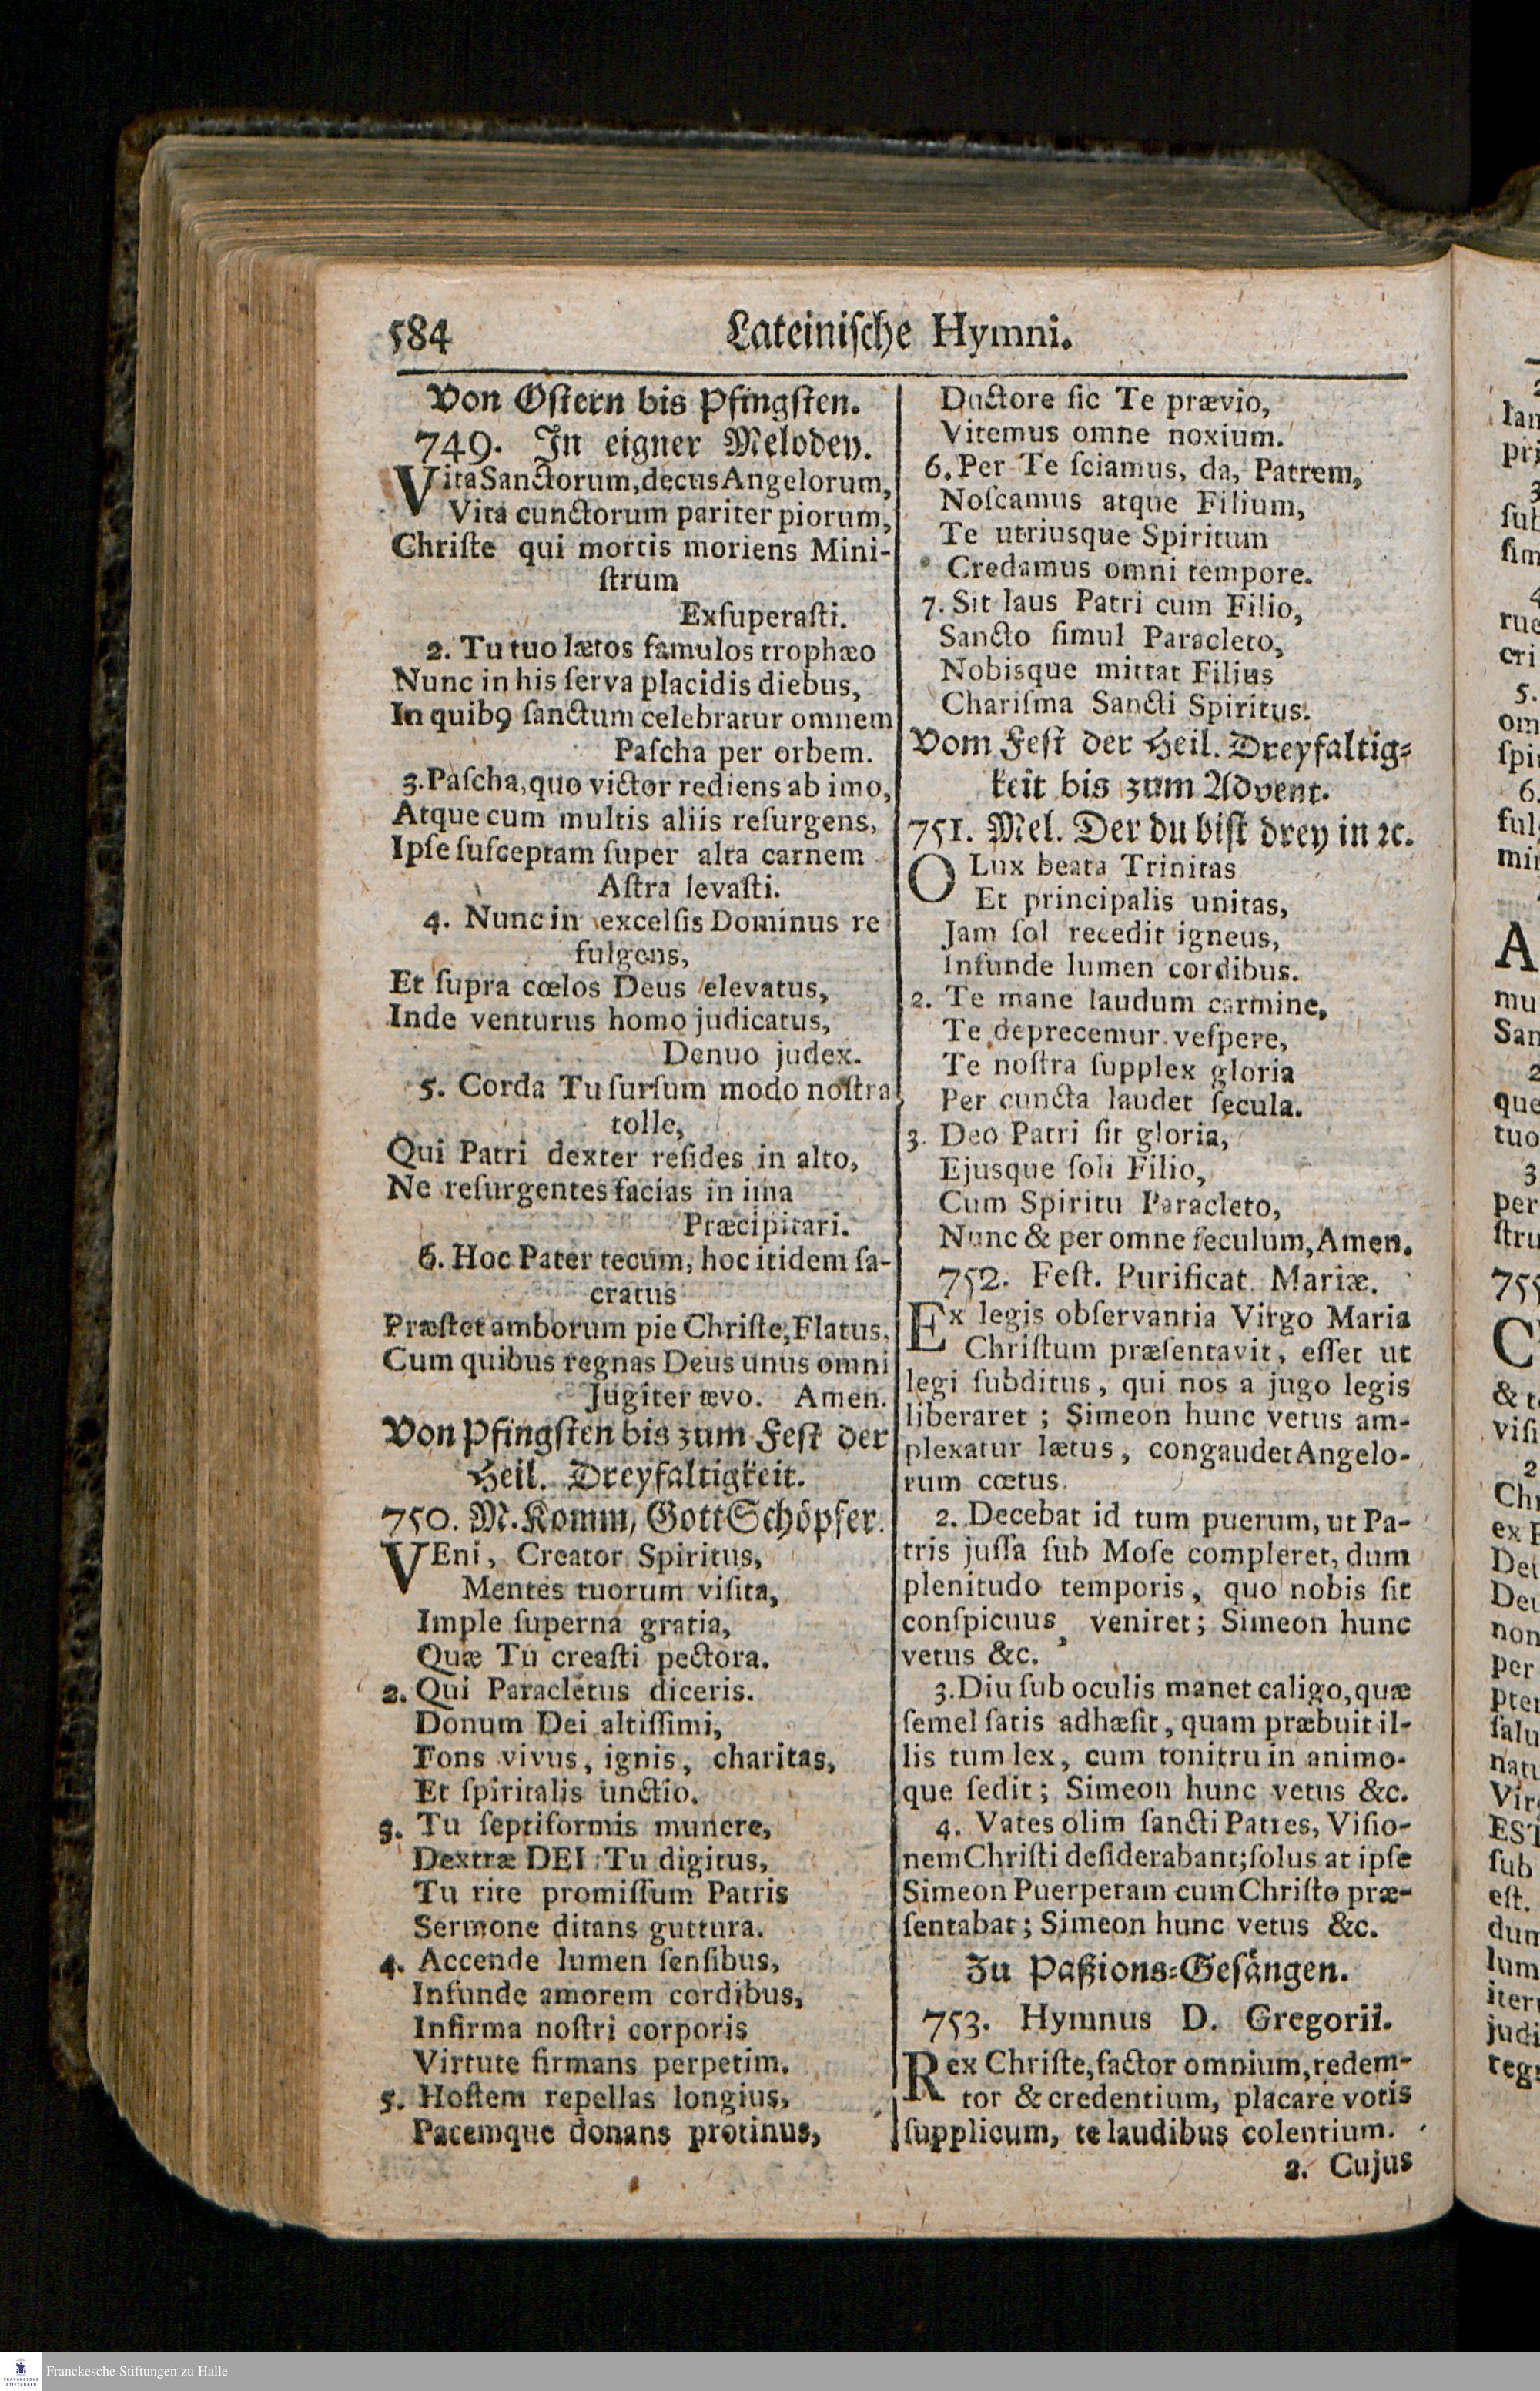 584 Lateinische Hymni.
Von Ostern bis Pfingsten.
749. In eigner Melodey.
Vita Sanctorum, decus Angelorum,
Vita cunctorum pariter piorum,
Christe qui mortis moriens Mini-
strum
Exsuperasti.
2. Tu tuo lætos famulos trophæo
Nunc in his serva placidis diebus,
In quibꝰ sanctum celebratur omnem
Pascha per orbem.
3. Pascha, quo victor rediens ab imo,
Atque cum multis aliis resurgens,
Ipse susceptam super alta carnem
Astra levasti.
4. Nunc in excelsis Dominus re
fulgens,
Et supra cœlos Deus elevatus,
Inde venturus homo judicatus,
Denuo judex.
5. Corda Tu sursum modo nostra
tolle,
Qui Patri dexter resides in alto,
Ne resurgentes facias in ima
Præcipitari.
6. Hoc Pater tecum, hoc itidem sa-
cratus
Præstet amborum pie Christe, Flatus,
Cum quibus regnas Deus unus omni
Jugiter ævo. Amen.
Von Pfingsten bis zum Fest der
Heil. Dreyfaltigkeit.
750. M. Komm, Gott Schöpfer.
VEni, Creator Spiritus,
Mentes tuorum visita,
Imple superna gratia,
Quæ Tu creasti pectora.
2. Qui Paracletus diceris.
Donum Dei altissimi,
Fons vivus, ignis, charitas,
Et spiritalis unctio.
3. Tu septiformis munere,
Dextræ DEI Tu digitus,
Tu rite promissum Patris
Sermone ditans guttura.
4. Accende lumen sensibus,
Infunde amorem cordibus,
Infirma nostri corporis
Virtute firmans perpetim.
5. Hostem repellas longius,
Pacemque donans protinus,
Ductore sic Te prævio,
Vitemus omne noxium.
6. Per Te sciamus, da, Patrem,
Noscamus atque Filium,
Te utriusque Spiritum
Credamus omni tempore.
7. Sit laus Patri cum Filio,
Sancto simul Paracleto,
Nobisque mittat Filius
Charisma Sancti Spiritus.
Vom Fest der Heil. Dreyfaltig-
keit bis zum Advent.
751. Mel. Der du bist drey in ꝛc.
O Lux beata Trinitas
Et principalis unitas,
Jam sol recedit igneus,
Infunde lumen cordibus.
2. Te mane laudum carmine,
Te deprecemur vespere,
Te nostra supplex gloria
Per cuncta laudet secula.
3. Deo Patri sit gloria,
Ejusque soli Filio,
Cum Spiritu Paracleto,
Nunc & per omne seculum, Amen.
752. Fest. Purificat. Mariæ.
Ex legis observantia Virgo Maria
Christum præsentavit, esset ut
legi subditus, qui nos a jugo legis
liberaret ; Simeon hunc vetus am-
plexatur lætus, congaudet Angelo-
rum cœtus.
2. Decebat id tum puerum, ut Pa-
tris jussa sub Mose compleret, dum
plenitudo temporis, quo nobis sit
conspicuus, veniret ; Simeon hunc
vetus &c.
3. Diu sub oculis manet caligo, quæ
semel satis adhæsit, quam præbuit il-
lis tum lex, cum tonitru in animo-
que sedit ; Simeon hunc vetus &c.
4. Vates olim sancti Patres, Visio-
nem Christi desiderabant; solus at ipse
Simeon Puerperam cum Christo præ-
sentabat ; Simeon hunc vetus &c.
Zu Paßions-Gesängen.
753. Hymnus D. Gregorii.
Rex Christe, factor omnium, redem-
tor & credentium, placare votis
supplicum, te laudibus colentium.
2. Cujus
Franckesche Stiftungen zu Halle